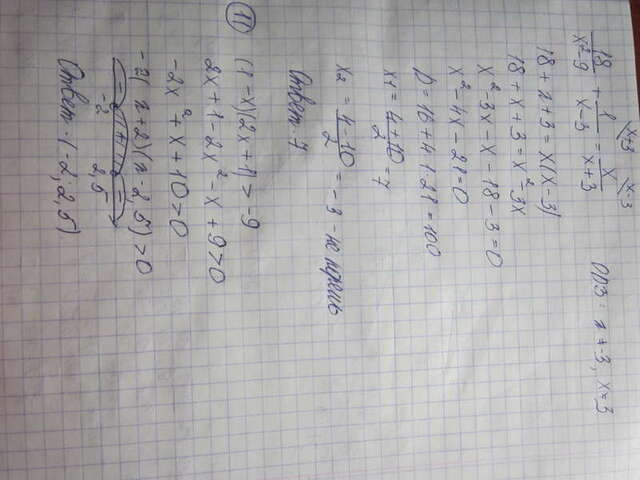 18/(x²-9) + 1/(x-3) = x/(x+3) ОДЗ: x ≠ -3, x = 3
x+3 x-3
18 + x + 3 = x(x-3)
18 + x + 3 = x² - 3x
x² - 3x - x - 18 - 3 = 0
x² - 4x - 21 = 0
D = 16 + 4·1·21 = 100
x₁ = (4+10)/2 = 7
x₂ = (4-10)/2 = -3 - не
Ответ: 7
11
(1-x)(2x+1) > -9
2x + 1 - 2x² - x + 9 > 0
-2x² + x + 10 > 0
-2(x+2)(x-2,5) > 0
- + -
-2 2,5
Ответ: (-2; 2,5)